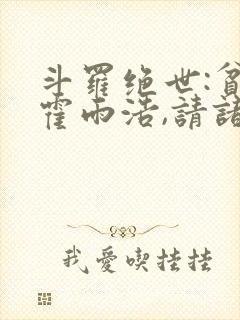 斗羅绝世:貧
霍雨浩,請諸
我愛喫挂挂